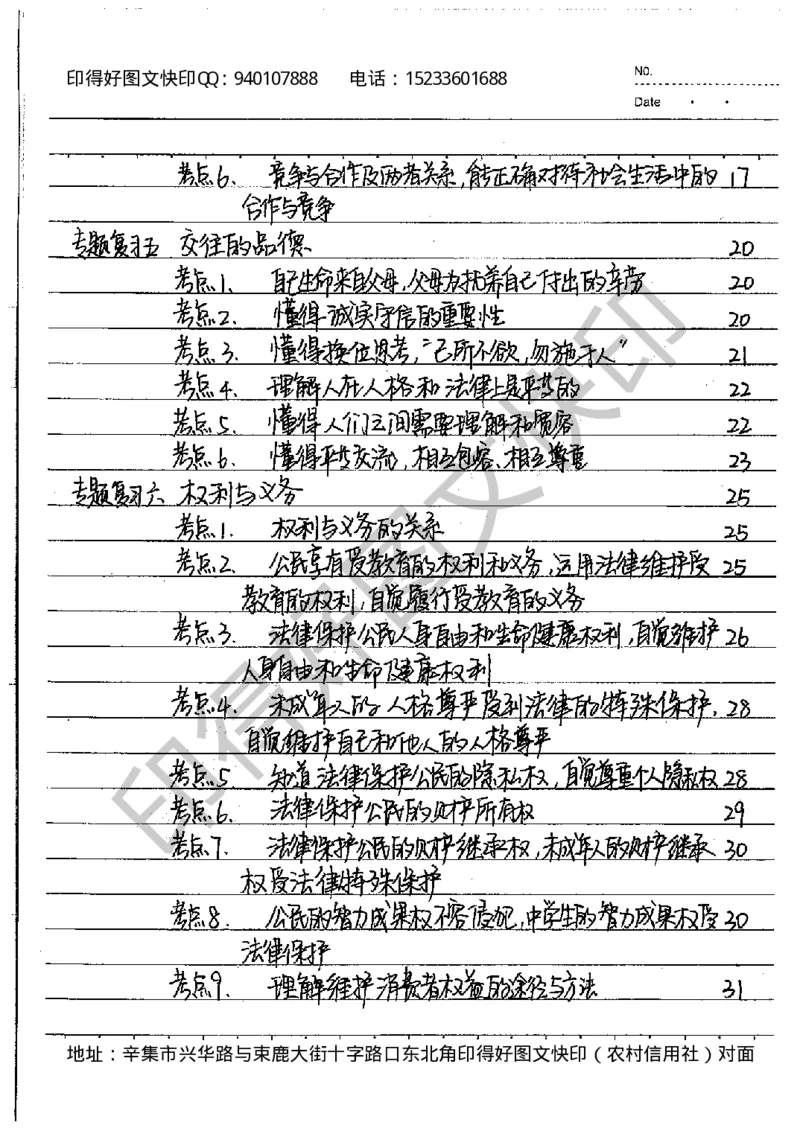 印得好图文快印QQ：940107888 电话：15233601688
No.
Date
考点6. 竞争与合作及两者关系,能正确对待社会生活中的 17
合作与竞争
专题复习五 交往的品德 20
考点1. 自己生命来自父母,父母为抚养自己付出的辛劳 20
考点2. 懂得诚实守信的重要性 20
考点3. 懂得换位思考,“己所不欲,勿施于人” 21
考点4. 理解人在人格和法律上是平等的 22
考点5. 懂得人们之间需要理解和宽容 22
考点6. 懂得平等交流,相互包容、相互尊重 23
专题复习六 权利与义务 25
考点1. 权利与义务的关系 25
考点2. 公民享有受教育的权利和义务,运用法律维护受 25
教育的权利,自觉履行受教育的义务
考点3. 法律保护公民人身自由和生命健康权利,自觉维护 26
人身自由和生命健康权利
考点4. 未成年人的人格尊严受到法律的特殊保护, 28
自觉维护自己和他人的人格尊严
考点5 知道法律保护公民的隐私权,自觉尊重个人隐私权 28
考点6. 法律保护公民的财产所有权 29
考点7. 法律保护公民的财产继承权,未成年人的财产继承 30
权受法律特殊保护
考点8. 公民的智力成果权不容侵犯,中学生的智力成果权受 30
法律保护
考点9. 理解维护消费者权益的途径与方法 31
地址：辛集市兴华路与束鹿大街十字路口东北角印得好图文快印（农村信用社）对面
印得好图文快印